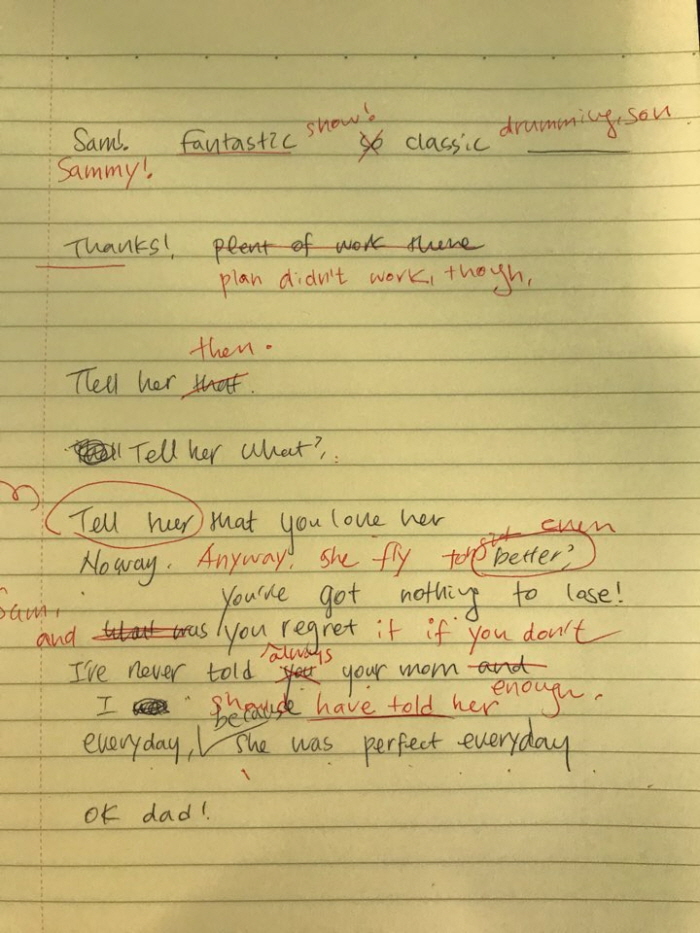 Sam!. fantastic show! so classic drumming, son.
Sammy!
Thanks! plent of work there
plan didn't work, though,
then.
Tell her that.
Tell her what?
Tell her that you love her
even
Noway. Anyway. she fly to better?
you've got nothing to lose!
Sam,
and was you regret it if you don't
always
I've never told your mom and
enough.
I should have told her
because
everyday, she was perfect everyday
OK dad!